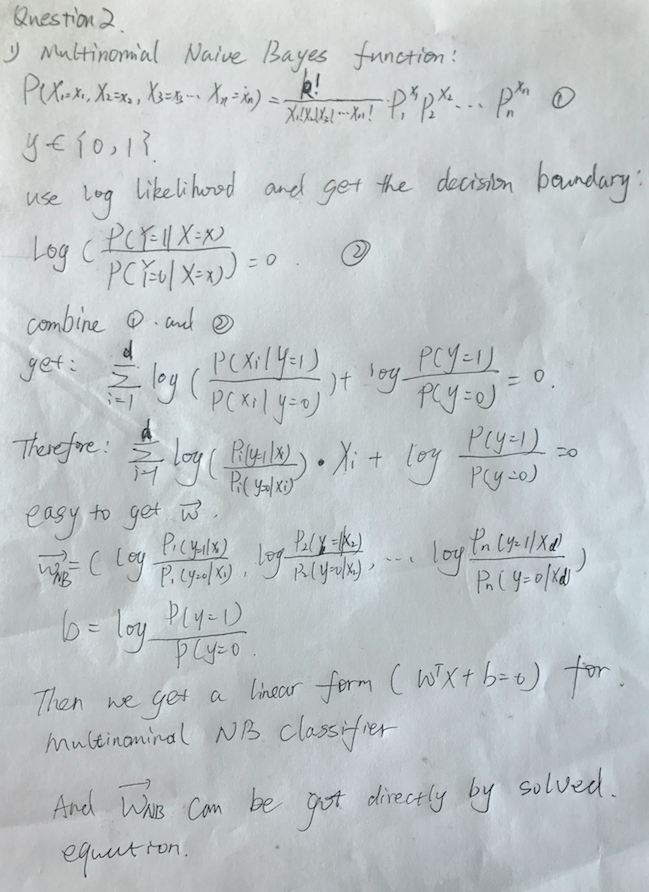 Question 2.
1) Multinomial Naive Bayes function:
P(X₁=x₁, X₂=x₂, X₃=x₃ ... Xₙ=xₙ) = k! / (x₁!x₂!x₃!...xₙ!) · P₁^x₁ P₂^x₂ ... Pₙ^xₙ ①
y ∈ {0,1}.
use log likelihood and get the decision boundary:
Log ( P(Y=1|X=x) / P(Y=0|X=x) ) = 0 . ②
combine ① . and ②
get: Σ_{i=1}^{d} log ( P(xi|y=1) / P(xi|y=0) ) + log P(y=1) / P(y=0) = 0.
Therefore: Σ_{i=1}^{d} log ( Pi(y=1|x) / Pi(y=0|xi) ) · Xi + log P(y=1) / P(y=0) = 0
easy to get w⃗ .
w⃗_NB = ( log P₁(y=1|x₁) / P₁(y=0|x₁) , log P₂(y=1|x₂) / P₂(y=0|x₂) , ... log Pₙ(y=1|xd) / Pₙ(y=0|xd) )
b = log P(y=1) / P(y=0 .
Then we get a linear form ( wᵀx + b = 0 ) for .
multinominal NB classifier
And w⃗_NB can be got directly by solved .
equation.